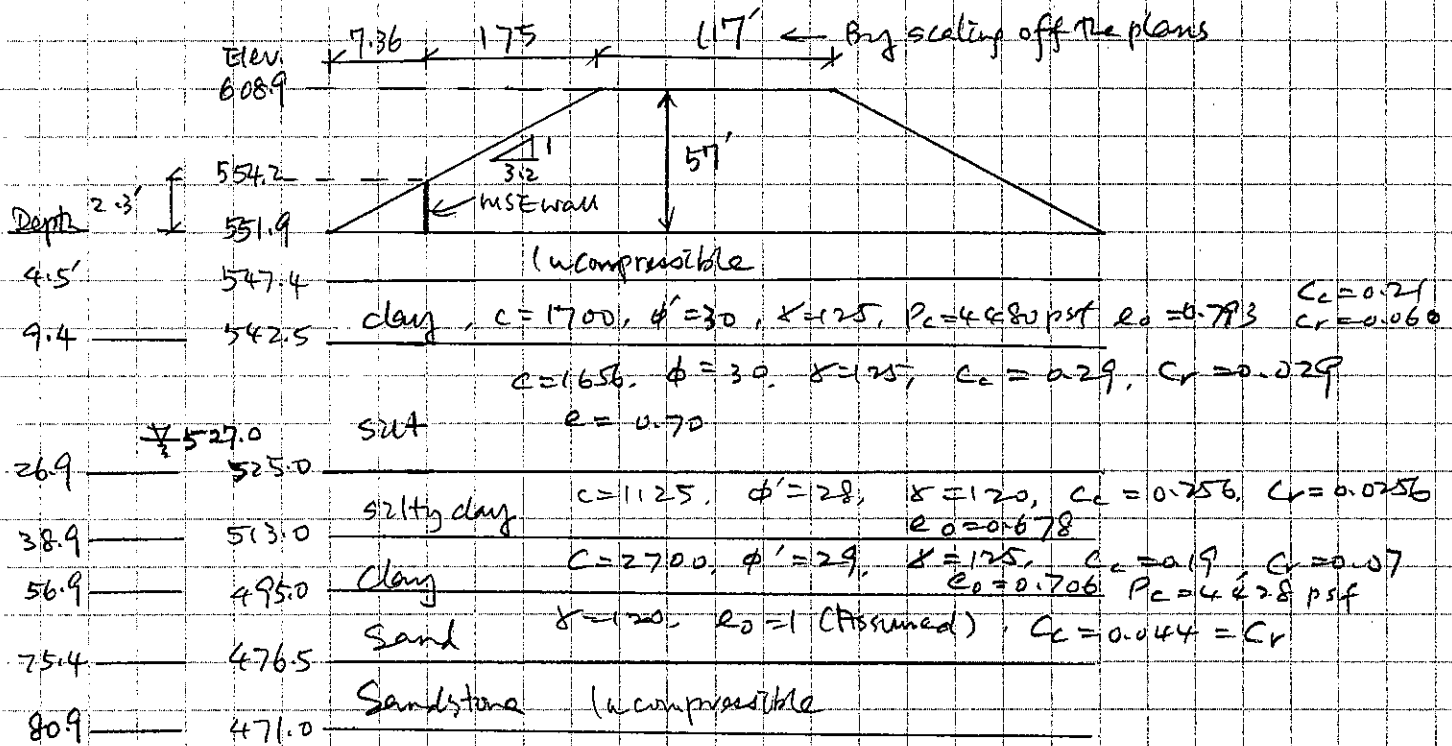 7.36 175 117' ← By scaling off the plans
Elev.
608.9
57'
1
3.2
554.2
MSE wall
Depth 2.3'
551.9
Incompressible
4.5' 547.4
clay, c=1700, φ'=30, γ=125, Pc=4480 psf e0=0.793 Cc=0.21
Cr=0.060
9.4 542.5
c=1656. φ=30. γ=125, Cc=0.29, Cr=0.029
silt e=0.70
527.0
26.9 525.0
silty clay c=1125. φ'=28, γ=120, Cc=0.256, Cr=0.0256
e0=0.678
38.9 513.0
Clay C=2700, φ'=29, γ=125, Cc=0.19, Cr=0.07
e0=0.706 Pc=4428 psf
56.9 495.0
Sand γ=120. e0=1 (Assumed), Cc=0.044=Cr
75.4 476.5
Sandstone Incompressible
80.9 471.0